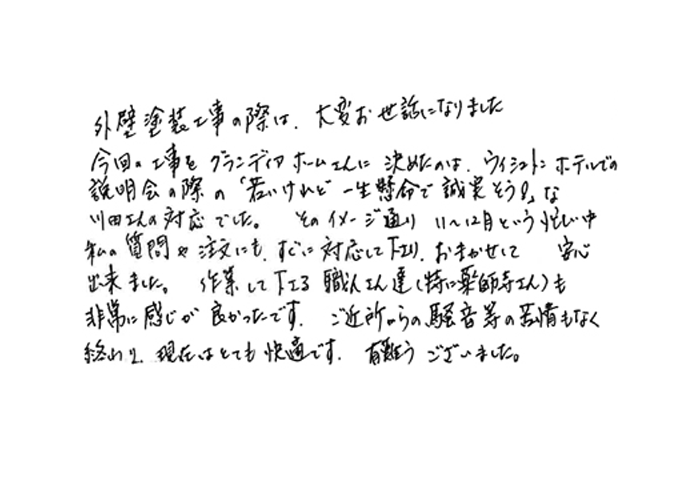 外壁塗装工事の際は、大変お世話になりました
今回の工事をグランディアホームさんに決めたのは、ウィシュトンホテルでの
説明会の際の「若いけれど一生懸命で誠実そう!」な
川田さんの対応でした。そのイメージ通り11~12月という忙しい中
私の質問や注文にも、すぐに対応して下さり、おまかせして安心
出来ました。作業して下さる職人さん達(特に薬師寺さん)も
非常に感じが良かったです。ご近所からの騒音等の苦情もなく
終わり、現在はとても快適です。有難うございました。